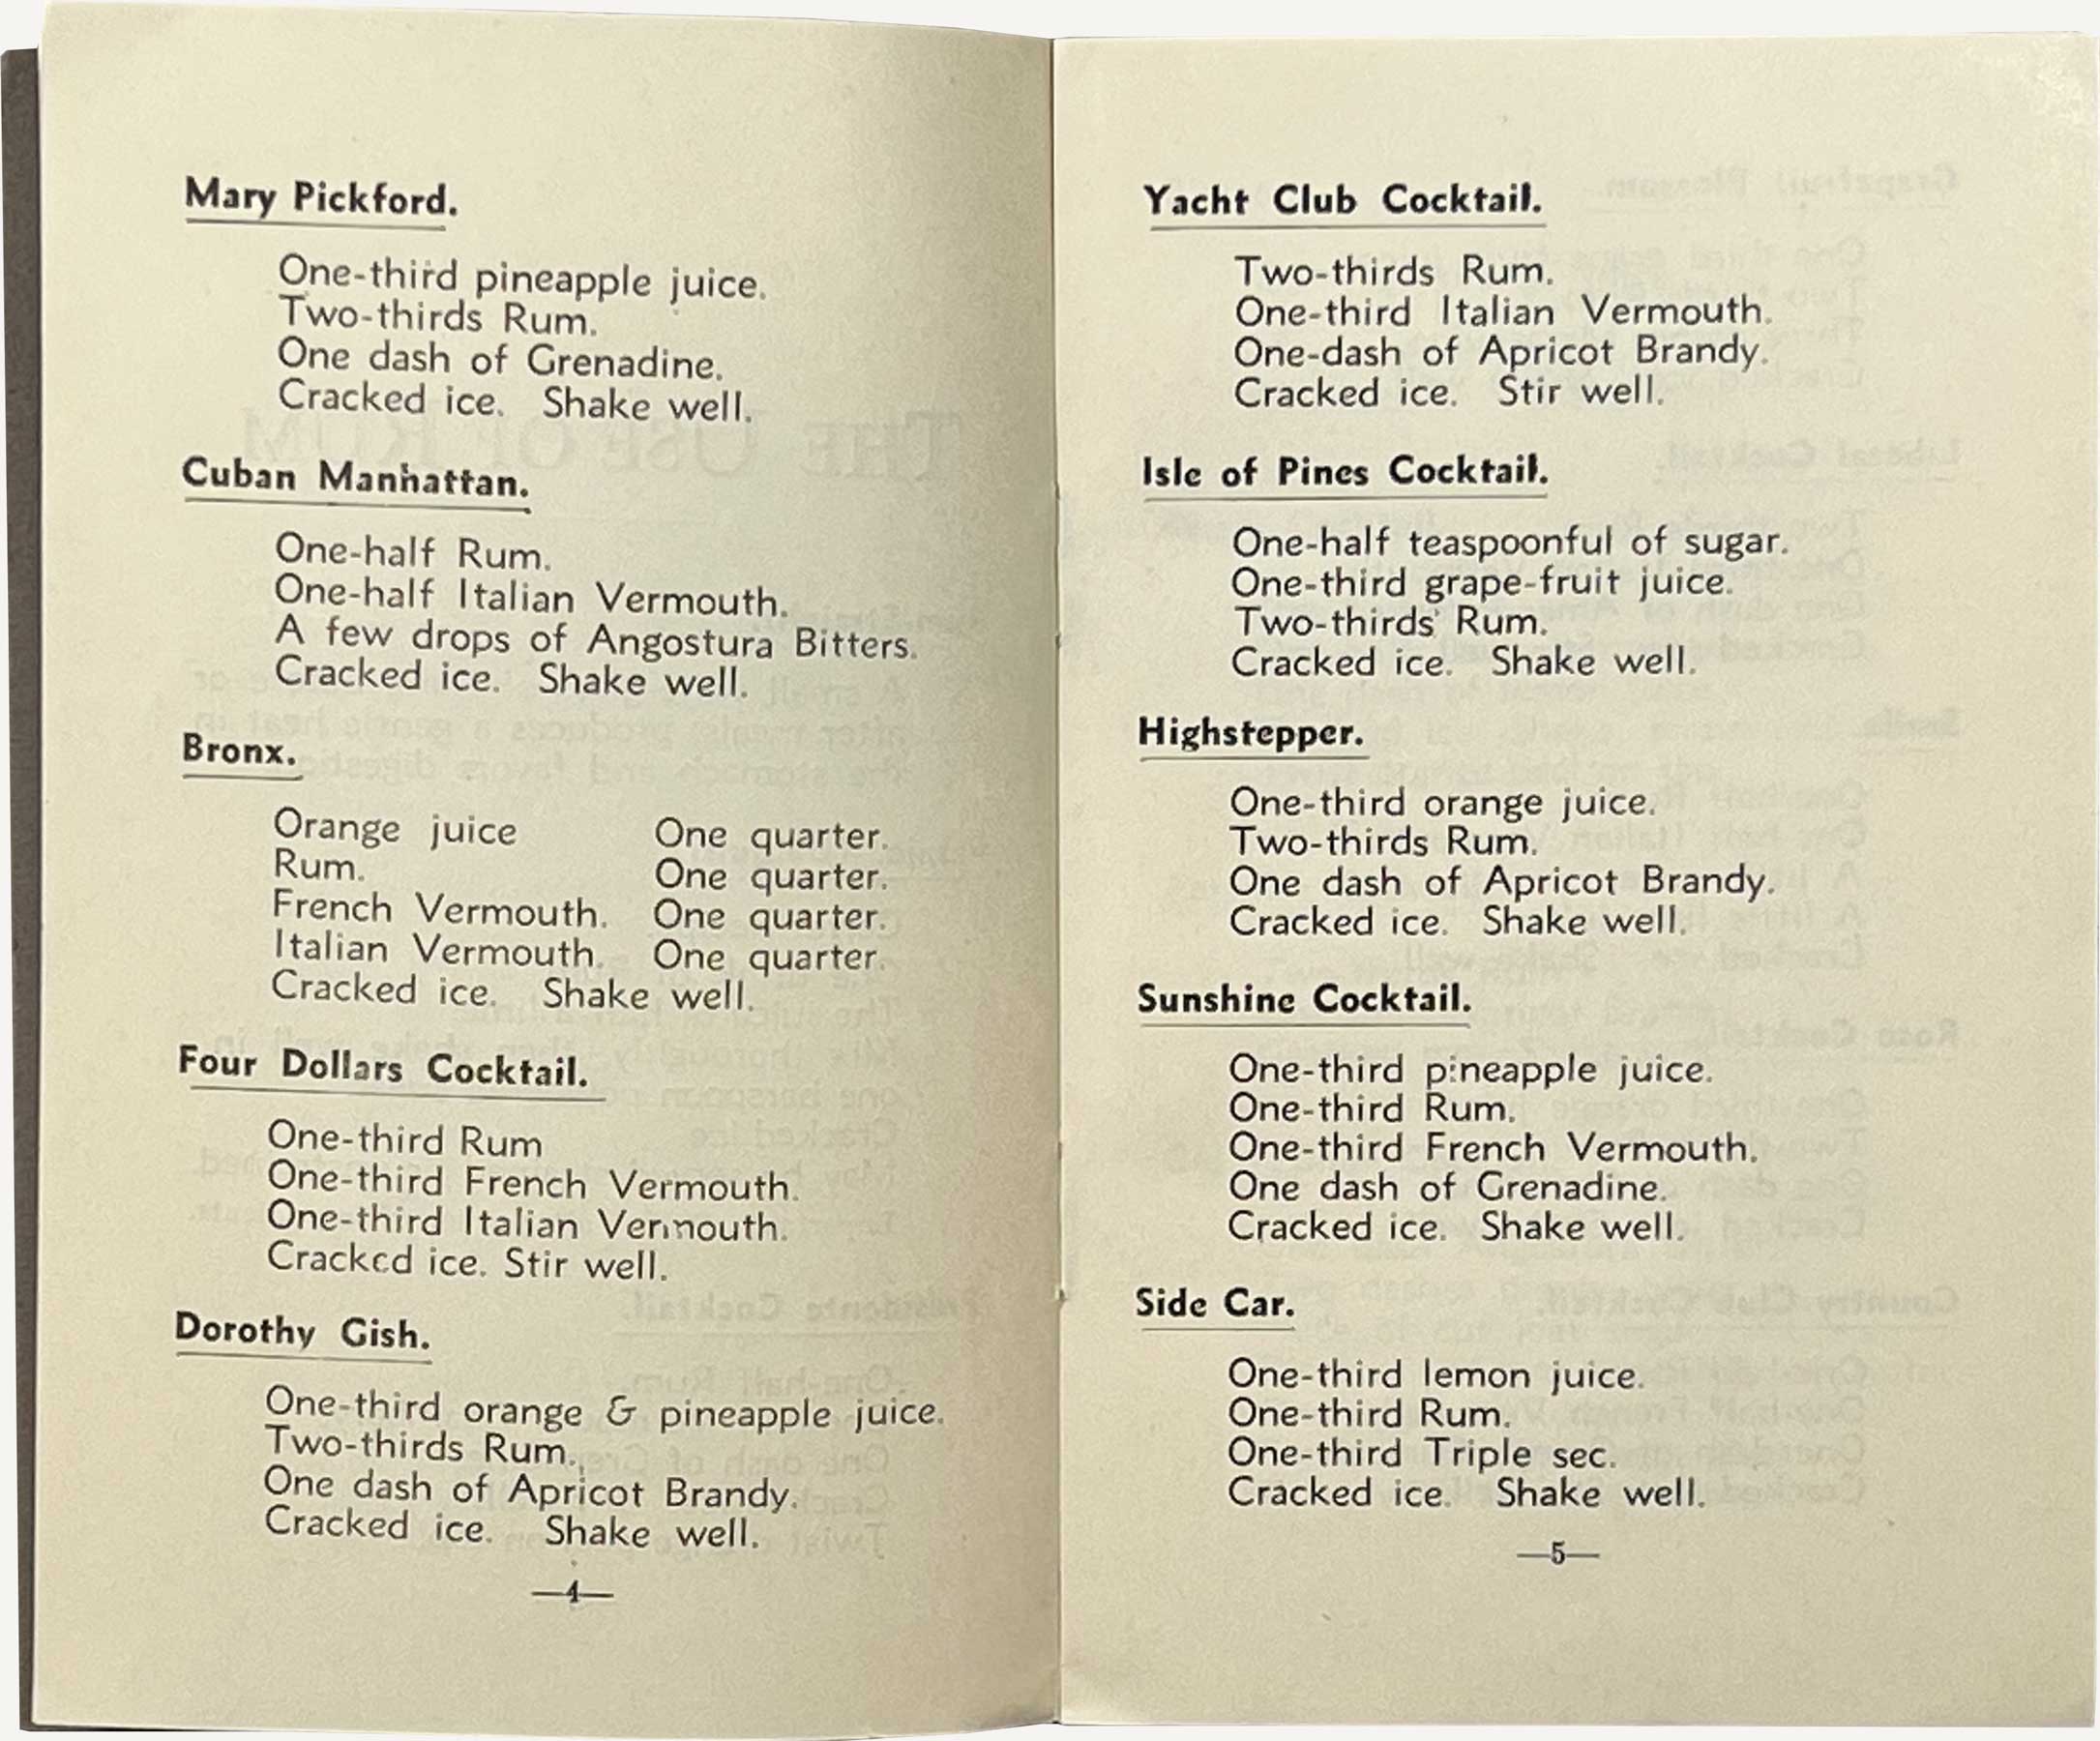 Mary Pickford.
One-third pineapple juice.
Two-thirds Rum.
One dash of Grenadine.
Cracked ice. Shake well.
Cuban Manhattan.
One-half Rum.
One-half Italian Vermouth.
A few drops of Angostura Bitters.
Cracked ice. Shake well.
Bronx.
Orange juice One quarter.
Rum. One quarter.
French Vermouth. One quarter.
Italian Vermouth. One quarter.
Cracked ice. Shake well.
Four Dollars Cocktail.
One-third Rum
One-third French Vermouth.
One-third Italian Vermouth.
Cracked ice. Stir well.
Dorothy Gish.
One-third orange & pineapple juice.
Two-thirds Rum.
One dash of Apricot Brandy.
Cracked ice. Shake well.
—4—
Yacht Club Cocktail.
Two-thirds Rum.
One-third Italian Vermouth.
One-dash of Apricot Brandy.
Cracked ice. Stir well.
Isle of Pines Cocktail.
One-half teaspoonful of sugar.
One-third grape-fruit juice.
Two-thirds Rum.
Cracked ice. Shake well.
Highstepper.
One-third orange juice.
Two-thirds Rum.
One dash of Apricot Brandy.
Cracked ice. Shake well.
Sunshine Cocktail.
One-third pineapple juice.
One-third Rum.
One-third French Vermouth.
One dash of Grenadine.
Cracked ice. Shake well.
Side Car.
One-third lemon juice.
One-third Rum.
One-third Triple sec.
Cracked ice. Shake well.
—5—